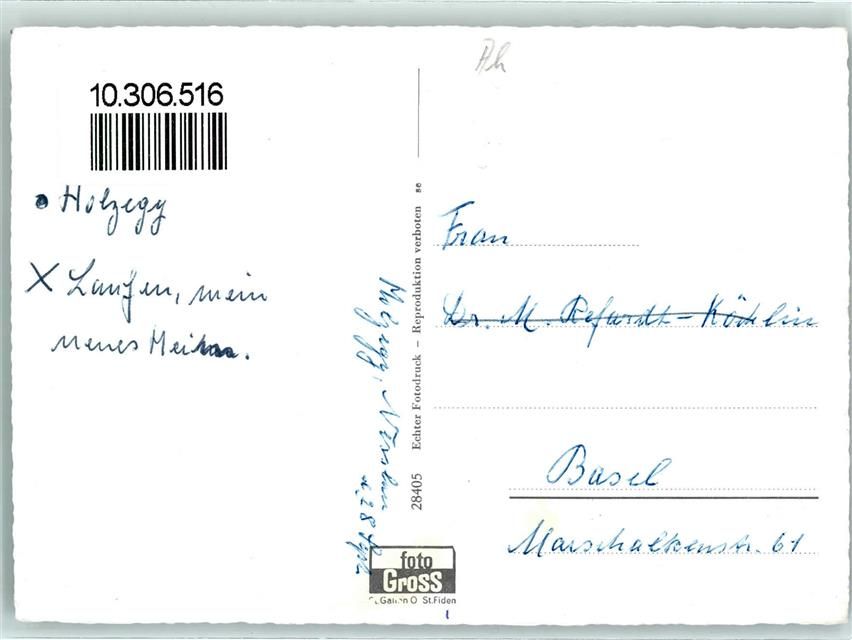 10.306.516
Holzegg
X Laufen, mein
neues Heim.
Echter Fotodruck – Reproduktion verboten
28405
foto
GROSS
St.Gallen O St.Fiden
Rh
Frau
Dr. M. Refardt-Köchlin
Basel
Marschalkenstr. 61
Holzegg,